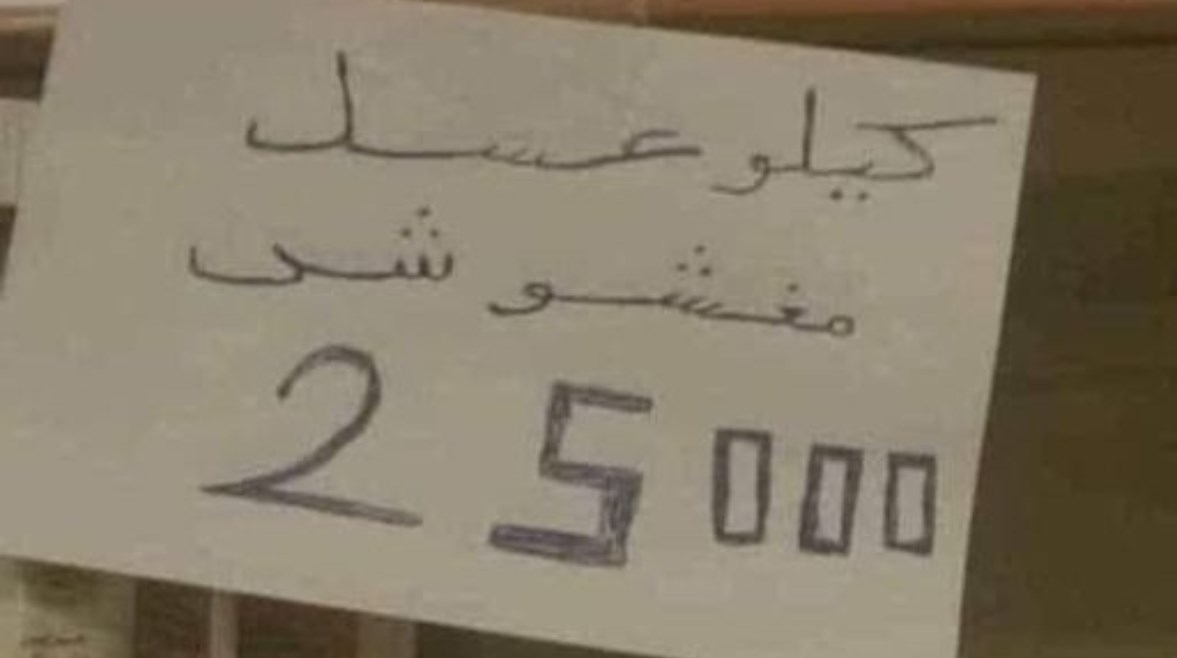 كيلو عسل
مغشوش
25000